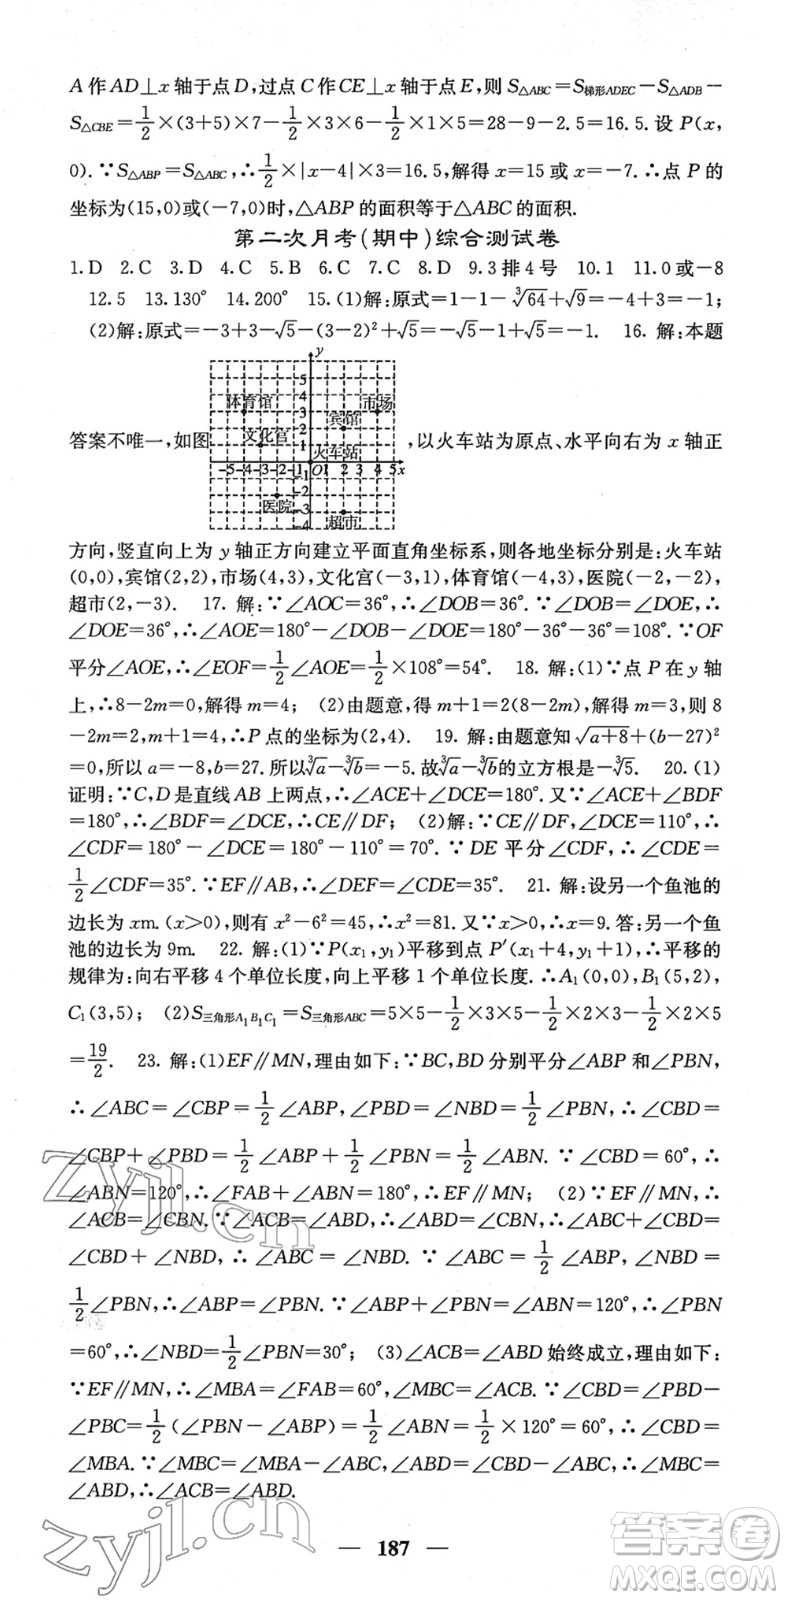 A作AD⊥x轴于点D,过点C作CE⊥x轴于点E,则S△ABC=S梯形ADEC-S△ADB-
S△CBE=1/2×(3+5)×7-1/2×3×6-1/2×1×5=28-9-2.5=16.5.设P(x,
0).∵S△ABP=S△ABC,∴1/2×|x-4|×3=16.5,解得x=15或x=-7.∴点P的
坐标为(15,0)或(-7,0)时,△ABP的面积等于△ABC的面积.
第二次月考(期中)综合测试卷
1.D 2.C 3.D 4.C 5.B 6.C 7.C 8.D 9.3排4号 10.1 11.0或-8
12.5 13.130° 14.200° 15.(1)解:原式=1-1-∛64+√9=-4+3=-1;
(2)解:原式=-3+3-√5-(3-2)²+√5=-√5-1+√5=-1. 16. 解:本题
y
5
4
体育馆 市场
3
宾馆
2
文化宫
1
火车站
-5-4-3-2-1 O1 2 3 4 5 x
-1
-2
医院
-3
超市
-4
答案不唯一,如图 ,以火车站为原点、水平向右为x轴正
方向,竖直向上为y轴正方向建立平面直角坐标系,则各地坐标分别是:火车站
(0,0),宾馆(2,2),市场(4,3),文化宫(-3,1),体育馆(-4,3),医院(-2,-2),
超市(2,-3). 17. 解:∵∠AOC=36°,∴∠DOB=36°.∵∠DOB=∠DOE,∴
∠DOE=36°,∴∠AOE=180°-∠DOB-∠DOE=180°-36°-36°=108°.∵OF
平分∠AOE,∴∠EOF=1/2∠AOE=1/2×108°=54°. 18. 解:(1)∵点P在y轴
上,∴8-2m=0,解得m=4; (2)由题意,得m+1=2(8-2m),解得m=3,则8
-2m=2,m+1=4,∴P点的坐标为(2,4). 19. 解:由题意知√(a+8)+(b-27)²
=0,所以a=-8,b=27.所以∛a-∛b=-5.故∛a-∛b的立方根是-∛5. 20.(1)
证明:∵C,D是直线AB上两点,∴∠ACE+∠DCE=180°.又∵∠ACE+∠BDF
=180°,∴∠BDF=∠DCE,∴CE∥DF; (2)解:∵CE∥DF,∠DCE=110°,∴
∠CDF=180°-∠DCE=180°-110°=70°.∵DE平分∠CDF,∴∠CDE=
1/2∠CDF=35°.∵EF∥AB,∴∠DEF=∠CDE=35°. 21. 解:设另一个鱼池的
边长为xm.(x>0),则有x²-6²=45,∴x²=81.又∵x>0,∴x=9.答:另一个鱼
池的边长为9m. 22. 解:(1)∵P(x₁,y₁)平移到点P′(x₁+4,y₁+1),∴平移的
规律为:向右平移4个单位长度,向上平移1个单位长度.∴A₁(0,0),B₁(5,2),
C₁(3,5); (2)S三角形A₁B₁C₁=S三角形ABC=5×5-1/2×3×5-1/2×2×3-1/2×2×5
=19/2. 23. 解:(1)EF∥MN,理由如下:∵BC,BD分别平分∠ABP和∠PBN,
∴∠ABC=∠CBP=1/2∠ABP,∠PBD=∠NBD=1/2∠PBN,∴∠CBD=
∠CBP+∠PBD=1/2∠ABP+1/2∠PBN=1/2∠ABN.∵∠CBD=60°,∴
∠ABN=120°,∴∠FAB+∠ABN=180°,∴EF∥MN; (2)∵EF∥MN,∴
∠ACB=∠CBN.∵∠ACB=∠ABD,∴∠CBN=∠ABD,∴∠ABC+∠CBD=
∠CBD+∠NBD,∴∠ABC=∠NBD.∵∠ABC=1/2∠ABP,∠NBD=
1/2∠PBN,∴∠ABP=∠PBN.∵∠ABP+∠PBN=∠ABN=120°,∴∠PBN
=60°,∴∠NBD=1/2∠PBN=30°; (3)∠ACB=∠ABD始终成立,理由如下:
∵EF∥MN,∴∠MBA=∠FAB=60°,∠MBC=∠ACB.∵∠CBD=∠PBD-
∠PBC=1/2(∠PBN-∠ABP)=1/2∠ABN=1/2×120°=60°,∴∠CBD=
∠MBA.∵∠MBC=∠MBA-∠ABC,∠ABD=∠CBD-∠ABC,∴∠MBC=
∠ABD,∴∠ACB=∠ABD.
— 187 —
zyjl.cn
zyjl.cn
答案圈
MXQE.COM